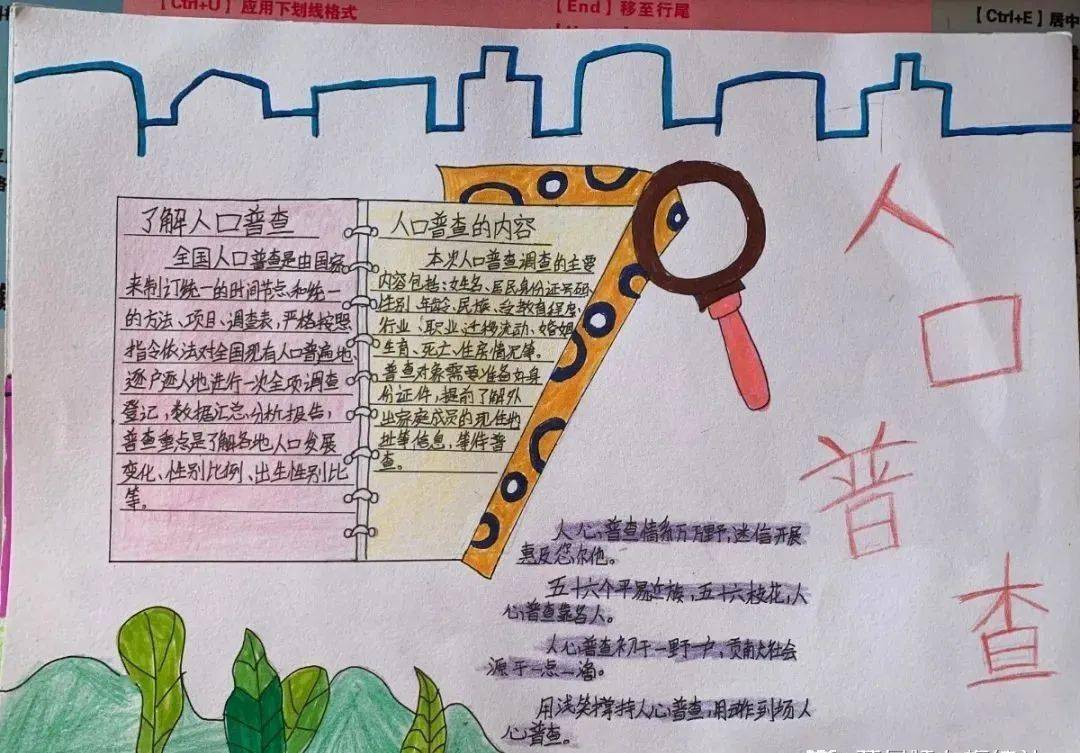 【Ctrl+U】应用下划线格式
【End】移至行尾
【Ctrl+E】居中
人
口
普
查
了解人口普查
全国人口普查是由国家
来制订统一的时间节点和统一
的方法、项目、调查表,严格按照
指令依法对全国现有人口普遍地、
逐户逐人地进行一次全项调查
登记,数据汇总分析报告,
普查重点是了解各地人口发展
变化、性别比例、出生性别比
等。
人口普查的内容
本次人口普查调查的主要
内容包括:姓名、居民身份证号码、
性别、年龄、民族、受教育程度、
行业、职业、迁移流动、婚姻
生育、死亡、住房情况等。
普查对象需要准备好身
份证件,提前了解外
出家庭成员的现住地
址等信息,等待普
查。
人心普查情系万万野,迷信开展
惠及您你他。
五十六个平易近族,五十六枝花,人
心普查靠各人。
人心普查初于一野一户,贡献社会
源于一点一滴。
用浅笑撑持人心普查,用动作到场人
心普查。